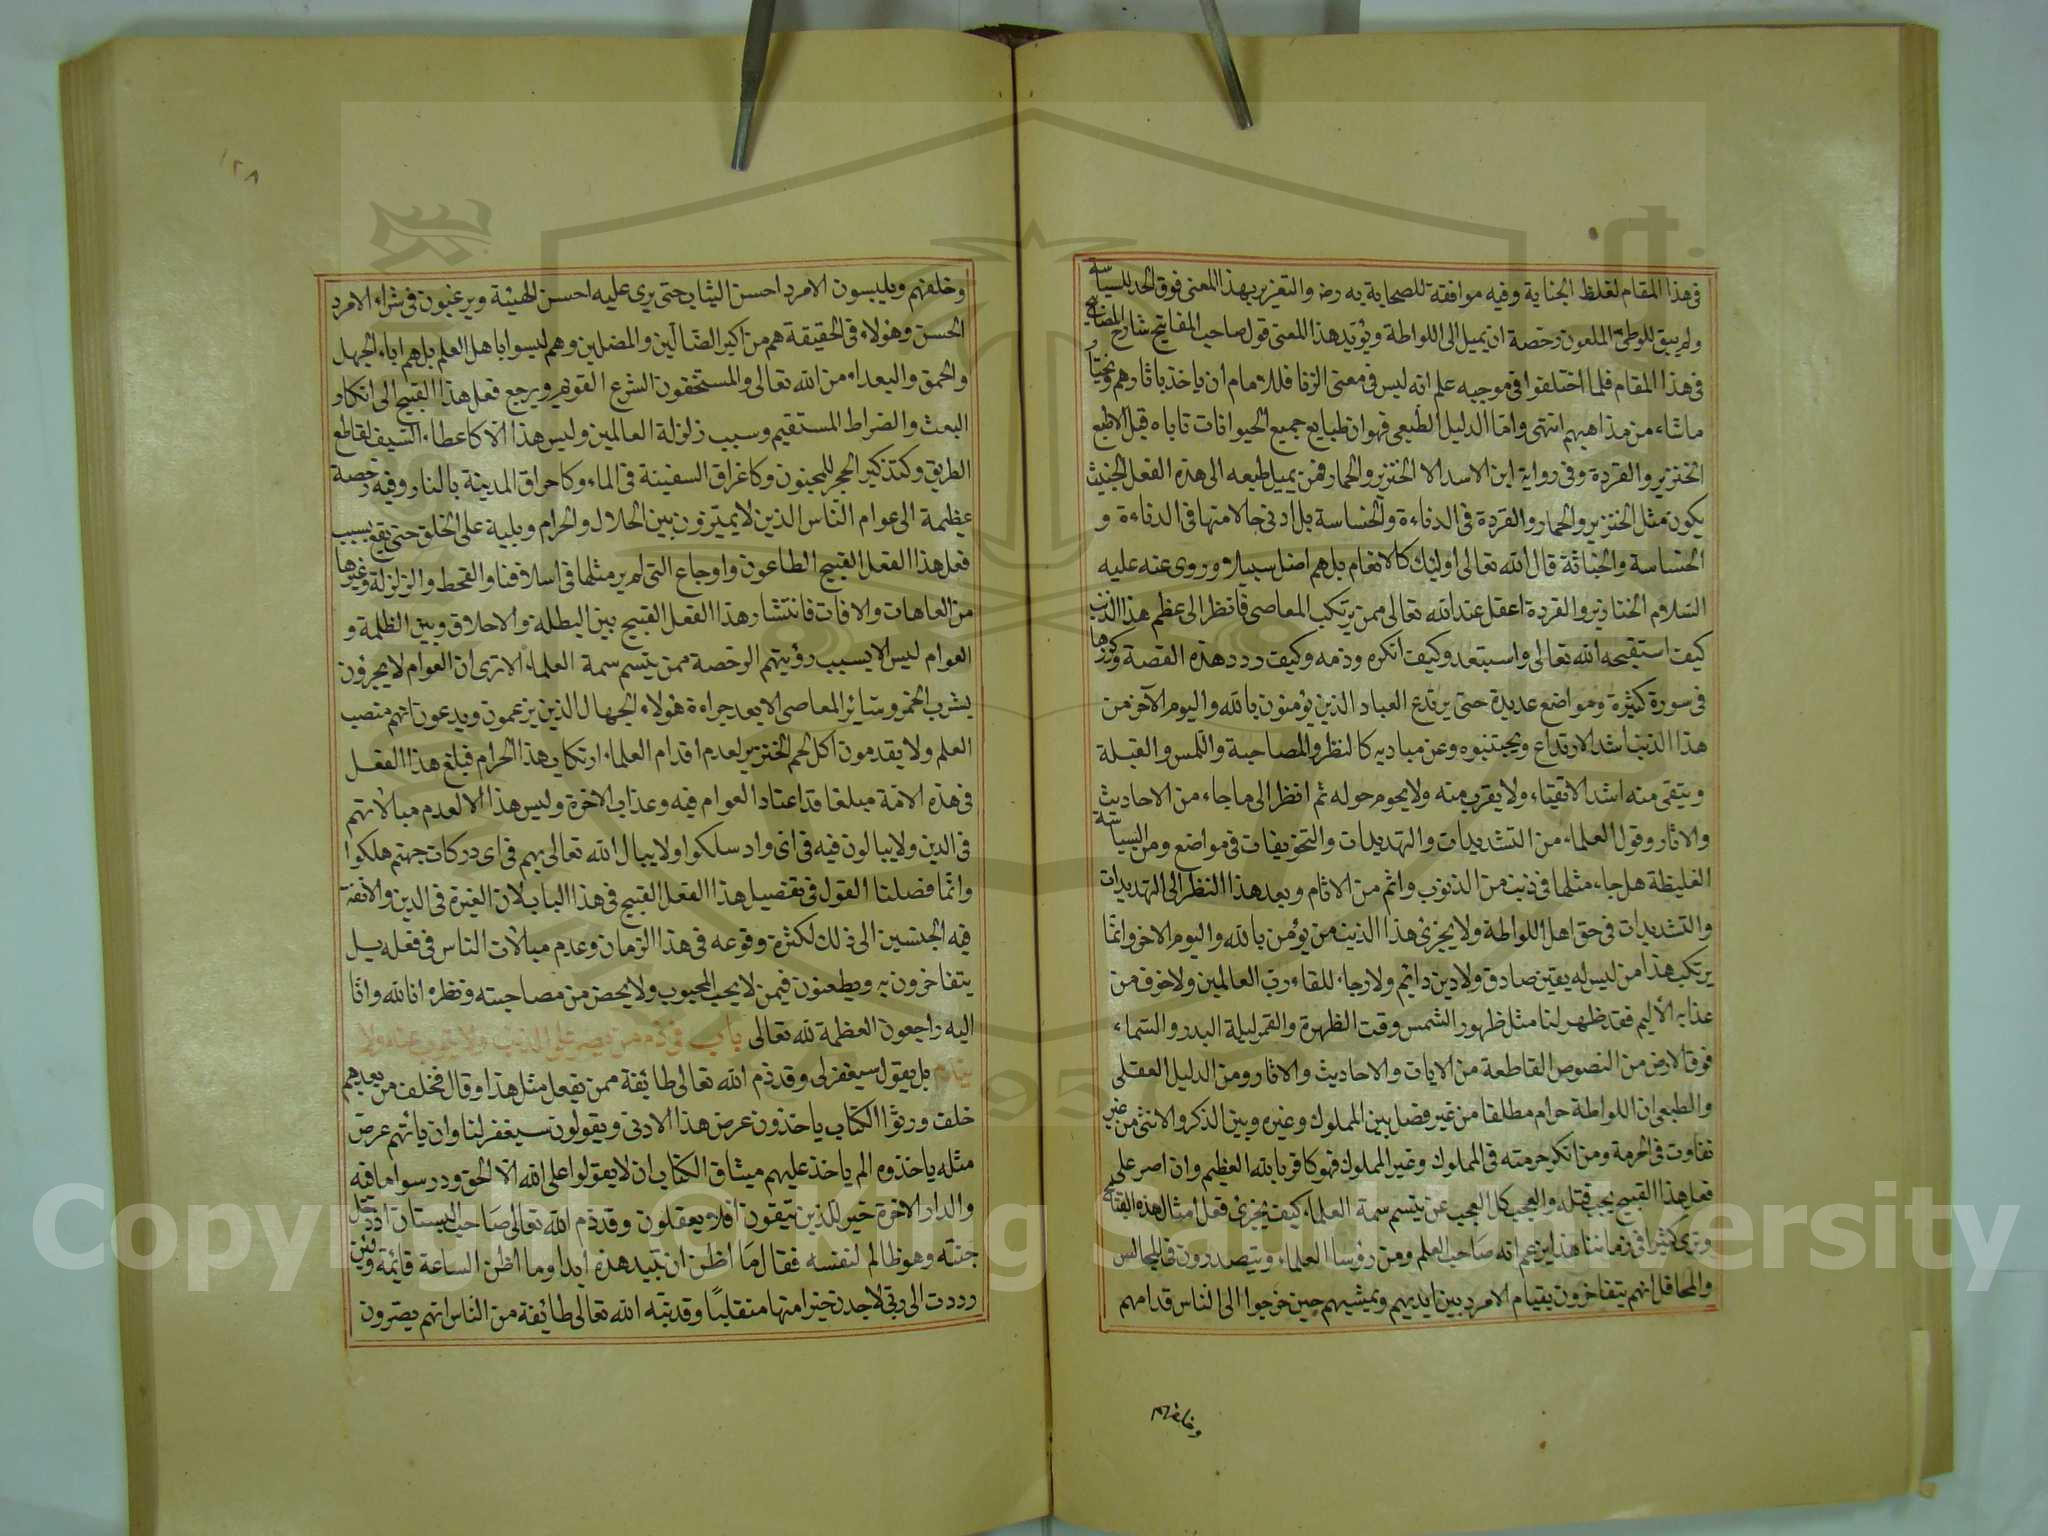 في هذا المقام لغلظ الجناية وفيه موافقة للصحابة به رض والتعزير بهذا المعنى فوق الحد للسياسة
ولم يبق للوطئ الملعون رخصة ان يميل الى اللواطة ويؤيد هذا المعنى قول صاحب المفاتيح شارح المصابيح
في هذا المقام فلما اختلفوا في موجبه علم انه ليس في معنى الزنا فللامام ان ياخذ باثارهم ويختار
ماشاء من مذاهبهم انتهى واما الدليل الطبعي فهو ان طبايع جميع الحيوانات تاباه قبل الاطبع
الخنزير والقردة وفي رواية ابن الاسد الا الخنزير والحمار فمن يميل طبعه الى هذه الفعل الخبيث
يكون مثل الخنزير والحمار والقردة في الدناءة والخساسة بل ادنى حالا منها في الدناءة و
الخساسة والخباثة قال الله تعالى اولئك كالانعام بل هم اضل سبيلا وروى عنه عليه
السلام الخنازير والقردة اعقل عند الله تعالى ممن يرتكب المعاصى فانظر الى عظم هذا الذنب
كيف استقبحه الله تعالى واستبعد وكيف انكره وذمه وكيف ردد هذه القصة وكررها
في سورة كثيرة ومواضع عديدة حتى يرتدع العباد الذين يؤمنون بالله واليوم الآخر من
هذا الذنب اشد الارتداع ويجتنبوه وعن مباديه كالنظر والمصاحبة واللمس والقبلة
ويتقى منه اشد الاتقياء ولا يقرب منه ولا يحوم حوله ثم انظر الى ما جاء من الاحاديث
والاثار وقول العلماء من التشديدات والتهديدات والتخويفات في مواضع ومن السياسة
الغليظة هل جاء مثلها في ذنب من الذنوب واثم من الاثام وبعد هذا النظر الى التهديدات
والتشديدات في حق اهل اللواطة ولا يجزئ هذا الذنب من يؤمن بالله واليوم الاخر وانما
يرتكب هذا من ليس له يقين صادق ولا دين دايم ولا رجاء للقاء رب العالمين ولا خوف من
عذابه الأليم فقد ظهر لنا مثل ظهور الشمس وقت الظهرة والقمر ليلة البدر والسماء
فوق الارض من النصوص القاطعة من الايات والاحاديث والاثار ومن الدليل العقلى
والطبعى ان اللواطة حرام مطلقا من غير فصل بين المملوك وغيره وبين الذكر والانثى من غير
تفاوت في الحرمة ومن انكر حرمته في المملوك وغير المملوك فهو كافر بالله العظيم وان اصر على
فعل هذا القبيح يجب قتله والعجب كل العجب عن يتسم سمة العلماء كيف يجزئ فعل امثال هذه القبائح
وترى كثيرا في زماننا هذا يزعم انه صاحب العلم ومن رؤسا العلماء ويتصدرون في المجالس
والمحافل انهم يتفاخرون بقيام الامرد بين ايديهم وتمشيهم حين خرجوا الى الناس قدامهم
وخلفهم
١٢٨
وخلفهم ويلبسون الامرد احسن الثياب حتى يرى عليه احسن الهيئة ويرغبون في شراء الامرد
الحسن وهؤلاء في الحقيقة هم من اكبر الضالين والمضلين وهم ليسوا باهل العلم بل هم اباء الجهل
والحمق والبعداء من الله تعالى والمستخفون الشرع القويم ويرجع فعل هذا القبيح الى انكار
البعث والصراط المستقيم وسبب زلزلة العالمين وليس هذا الا كاعطاء السيف لقاطع
الطريق وكتذكير الحجر للمجنون وكاغراق السفينة في الماء وكاحراق المدينة بالنار وفيه رخصة
عظيمة الى عوام الناس الذين لا يميزون بين الحلال والحرام وبلية على الخلق حتى يقع بسبب
فعل هذا الفعل القبيح الطاعون واوجاع التى لم ير مثلها في اسلافنا والقحط والزلزلة وغيرها
من العاهات والافات فانتشار هذا الفعل القبيح بين البطلة والاحلاق وبين الظلمة و
العوام ليس الا بسبب رؤيتهم الرخصة ممن يتسم سمة العلماء الا ترى ان العوام لا يجرؤن
بشرب الخمر وسائر المعاصى الا بعد جراءة هؤلاء الجهال الذين يزعمون ويدعون انهم منصب
العلم ولا يقدمون اكل لحم الخنزير لعدم اقدام العلماء ارتكاب هذا الحرام فبلغ هذا الفعل
في هذه الامة مبلغا قد اعتاد العوام فيه وعذاب الاخرة وليس هذا الا لعدم مبالاتهم
في الدين ولا يبالون فيه في اى واد سلكوا ولا يبال الله تعالى بهم في اى دركات جهنم هلكوا
وانما فصلنا القول في تفصيل هذا الفعل القبيح في هذا الباب لان الغيرة في الدين والانفة
فيه الجئتنين الى ذلك لكثرة وقوعه في هذا الزمان وعدم مبالات الناس في فعله بل
يتفاخرون به ويطعنون فيمن لا يحب المحبوب ولا يحض من مصاحبته ونظره انا لله وانا
اليه راجعون العظمة لله تعالى باب في ذم من يصر على الذنب ولا يتوب عنه ولا
يندم بل يقول سيغفر لى وقد ذم الله تعالى طائفة ممن يفعل مثل هذا وقال فخلف من بعدهم
خلف ورثوا الكتاب ياخذون عرض هذا الادنى ويقولون سيغفر لنا وان ياتهم عرض
مثله ياخذوه الم ياخذ عليهم ميثاق الكتاب ان لا يقولوا على الله الا الحق ودرسوا ما فيه
والدار الاخرة خير للذين يتقون افلا يعقلون وقد ذم الله تعالى صاحب البستان اذ دخل
جنته وهو ظالم لنفسه فقال ما اظن ان تبيد هذه ابدا وما اظن الساعة قائمة ولئن
رددت الى ربى لاجدن خيرا منها منقلبا وقد نبه الله تعالى طائفة من الناس انهم يصرون
Copyright © King Saud University